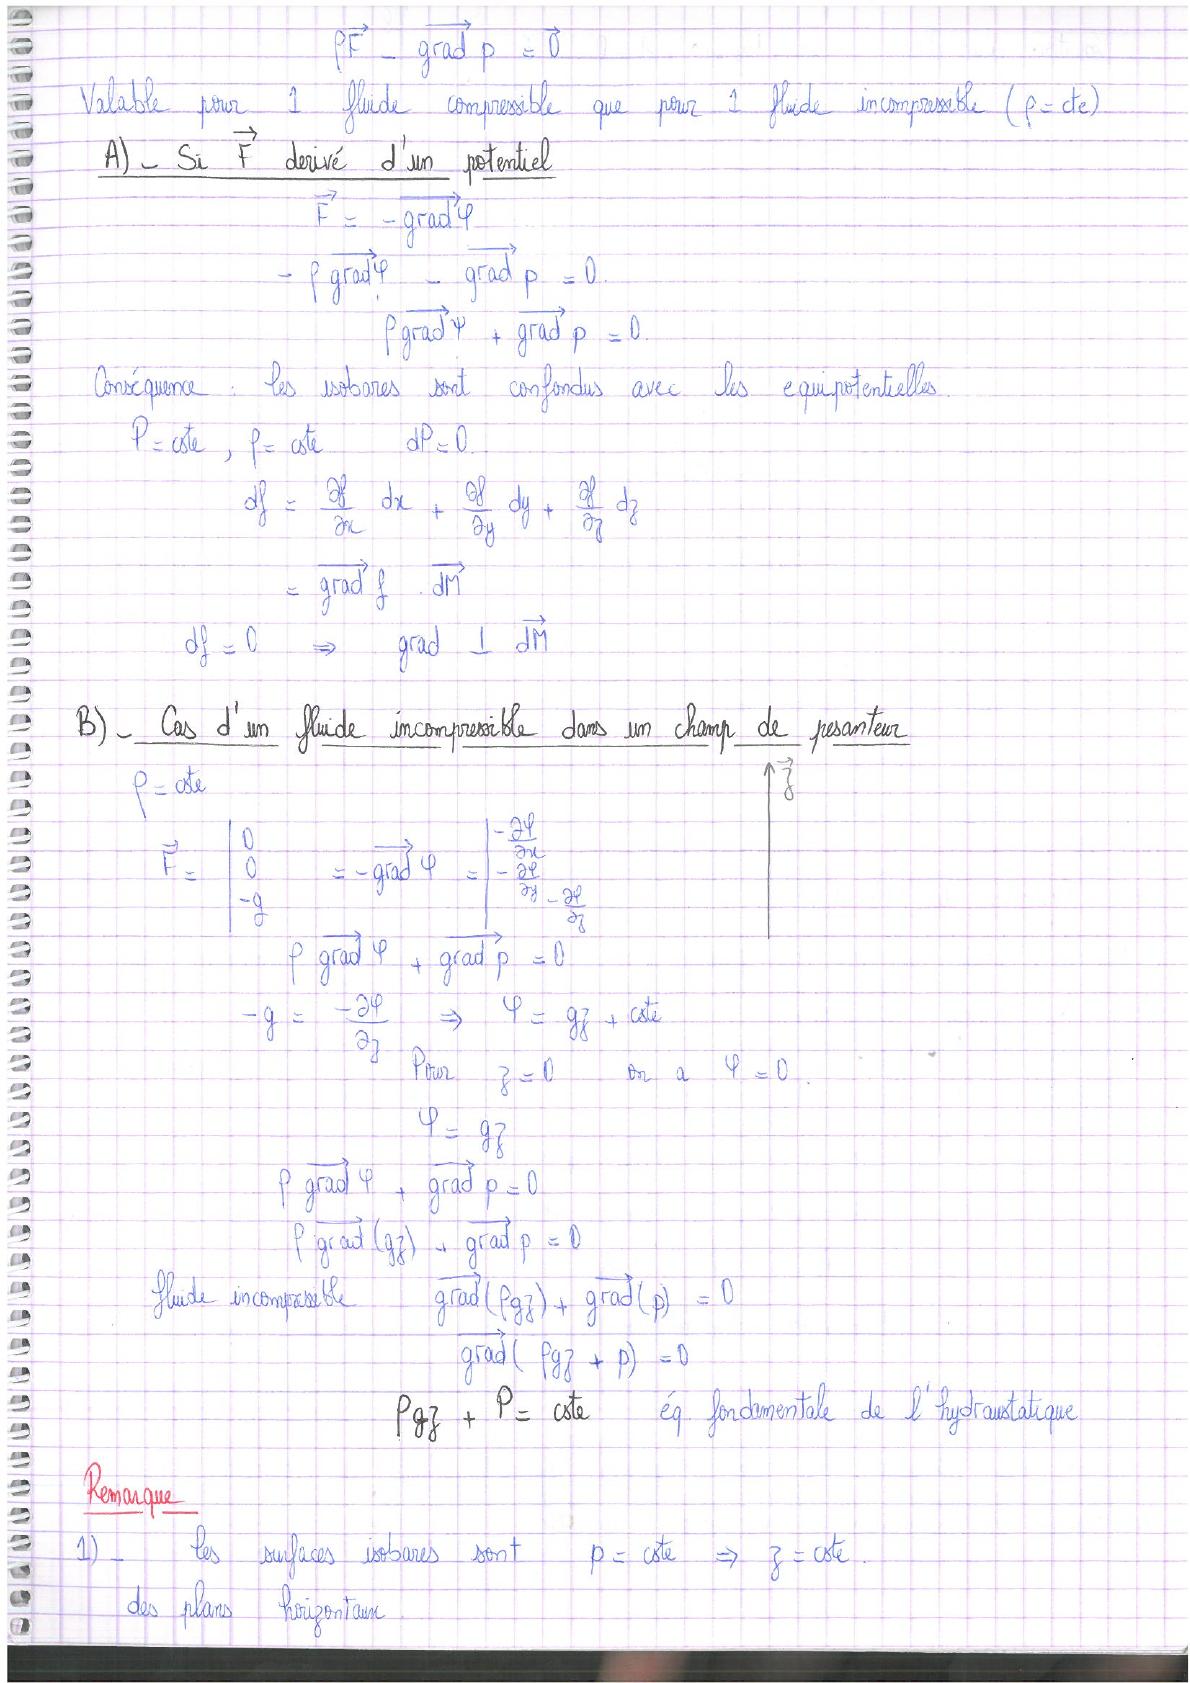 ρF⃗ - grad⃗ p = 0⃗
Valable pour 1 fluide compressible que pour 1 fluide incompressible (ρ = cte)
A)_ Si F⃗ derivé d'un potentiel
F⃗ = -grad⃗ φ
- ρ grad⃗ φ - grad⃗ p = 0.
ρ grad⃗ φ + grad⃗ p = 0.
Conséquence : les isobares sont confondus avec les equipotentielles.
P = cste , ρ = cste dP = 0.
df = ∂f/∂x dx + ∂f/∂y dy + ∂f/∂z dz
= grad⃗ f . dM⃗
df = 0 ⇒ grad ⊥ dM⃗
B)_ Cas d'un fluide incompressible dans un champ de pesanteur
ρ = cste
z⃗
F⃗ = | 0 0 -g = -grad⃗ φ = | -∂φ/∂x -∂φ/∂y -∂φ/∂z
ρ grad⃗ φ + grad⃗ p = 0
-g = -∂φ/∂z ⇒ φ = gz + cste
Pour z = 0 on a φ = 0.
φ = gz
ρ grad⃗ φ + grad⃗ p = 0
ρ grad⃗ (gz) + grad⃗ p = 0
fluide incompressible grad⃗ (ρgz) + grad⃗ (p) = 0
grad⃗ ( ρgz + p) = 0
ρgz + P = cste éq fondamentale de l'hydraustatique
Remarque
1)_ les surfaces isobares sont p = cste ⇒ z = cste.
des plans horizontaux.